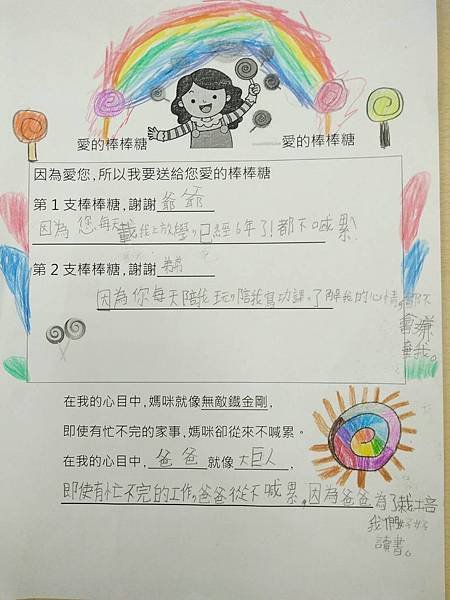 愛的棒棒糖 愛的棒棒糖
因為愛您,所以我要送給您愛的棒棒糖
第1支棒棒糖,謝謝爺爺
因為您每天載我上放學,已經6年了!都不喊累
第2支棒棒糖,謝謝弟弟
因為你每天陪我玩,陪我寫功課,了解我的心情,都不
會嫌
棄我。
在我的心目中,媽咪就像無敵鐵金剛,
即使有忙不完的家事,媽咪卻從來不喊累。
在我的心目中,爸爸就像大巨人,
即使有忙不完的工作,爸爸從不喊累,因為爸爸為了栽培
我們好好
讀書。